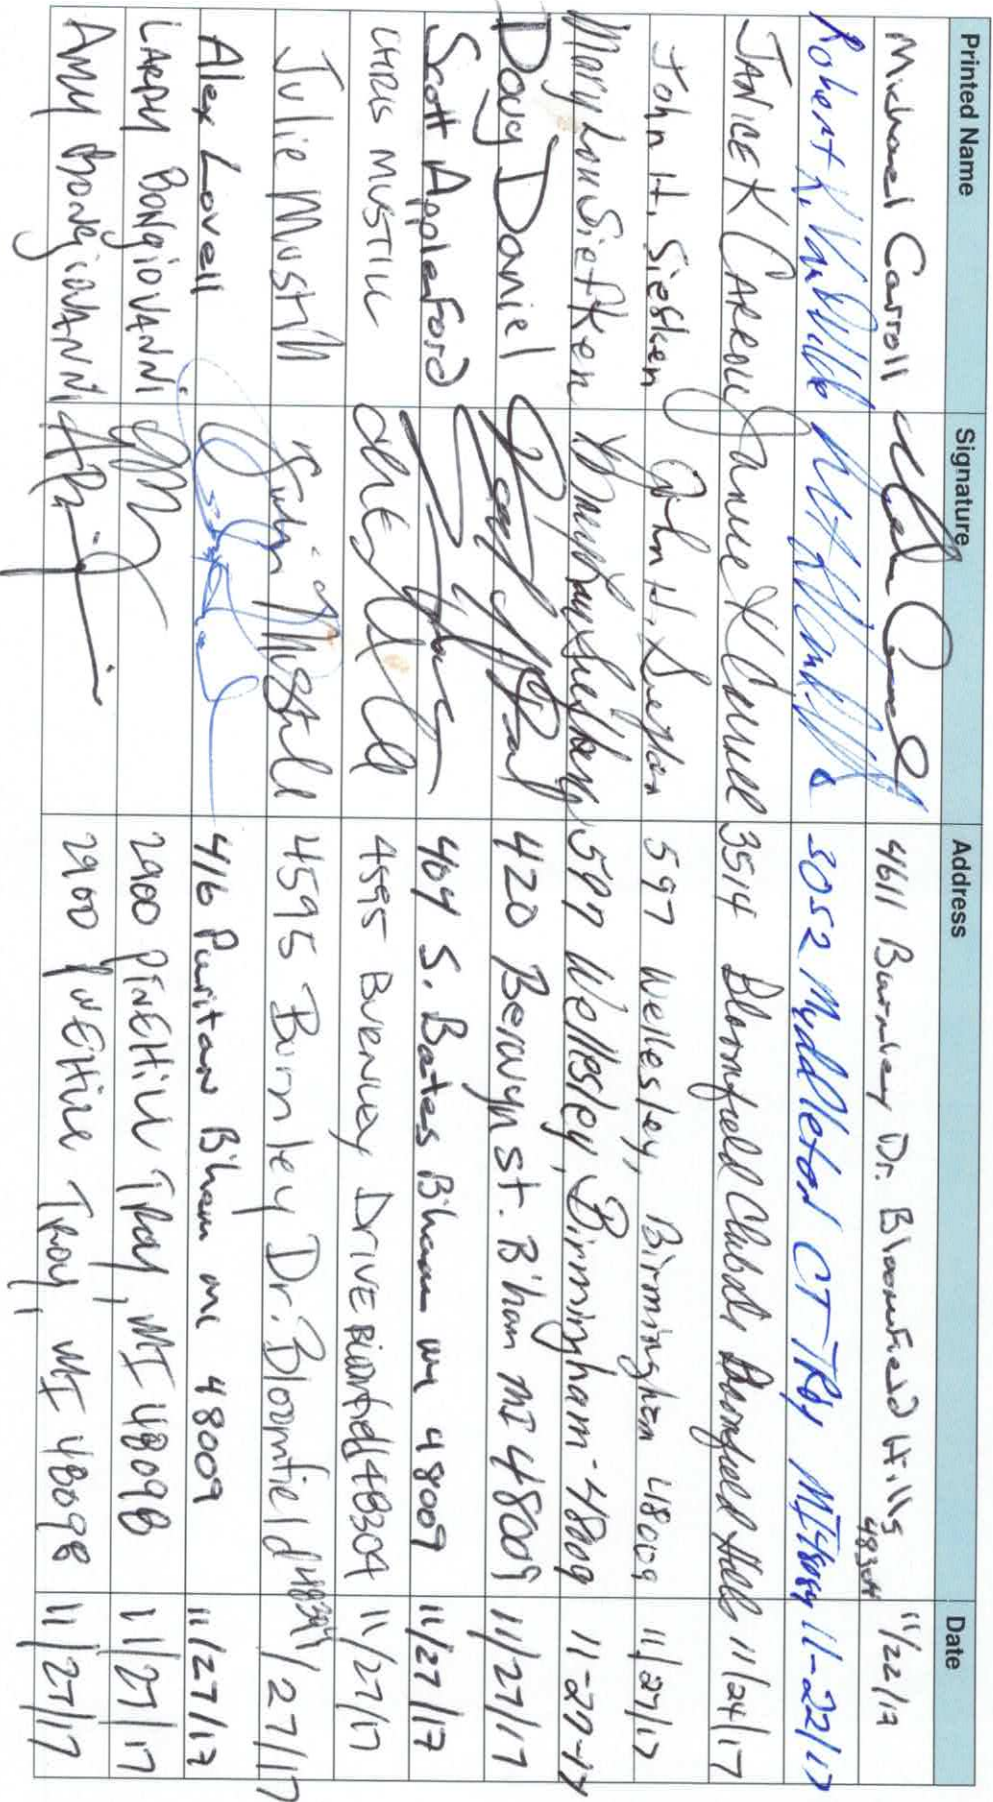 Printed Name Signature Address Date
Michael Carroll 4611 Burnley Dr. Bloomfield Hills 48304 11/22/17
Robert K. 3052 Myddleton CT Troy MI 48084 11-22/17
JANICE K CARROLL Janice K Carroll 3514 Bloomfield Club Dr. Bloomfield Hills 11/24/17
John H. Siefken John H. Siefken 597 Wellesley, Birmingham 48009 11/27/17
Mary Lou Siefken Mary Lou Siefken 597 Wellesley, Birmingham 48009 11-27-17
Doug Daniel 420 Berwyn St. B'ham MI 48009 11/27/17
Scott Appleford 464 S. Bates B'ham MI 48009 11/27/17
CHRIS MUSTILL 4595 BURNLEY DRIVE Bloomfield 48304 11/27/17
Julie Mustill Julie Mustill 4595 Burnley Dr. Bloomfield 48304 11/27/17
Alex Lovell 416 Puritan B'ham MI 48009 11/27/17
LARRY BONGIOVANNI 2900 PINEHILL TROY, MI 48098 11/27/17
AMY BONGIOVANNI 2900 PINEHILL TROY, MI 48098 11/27/17